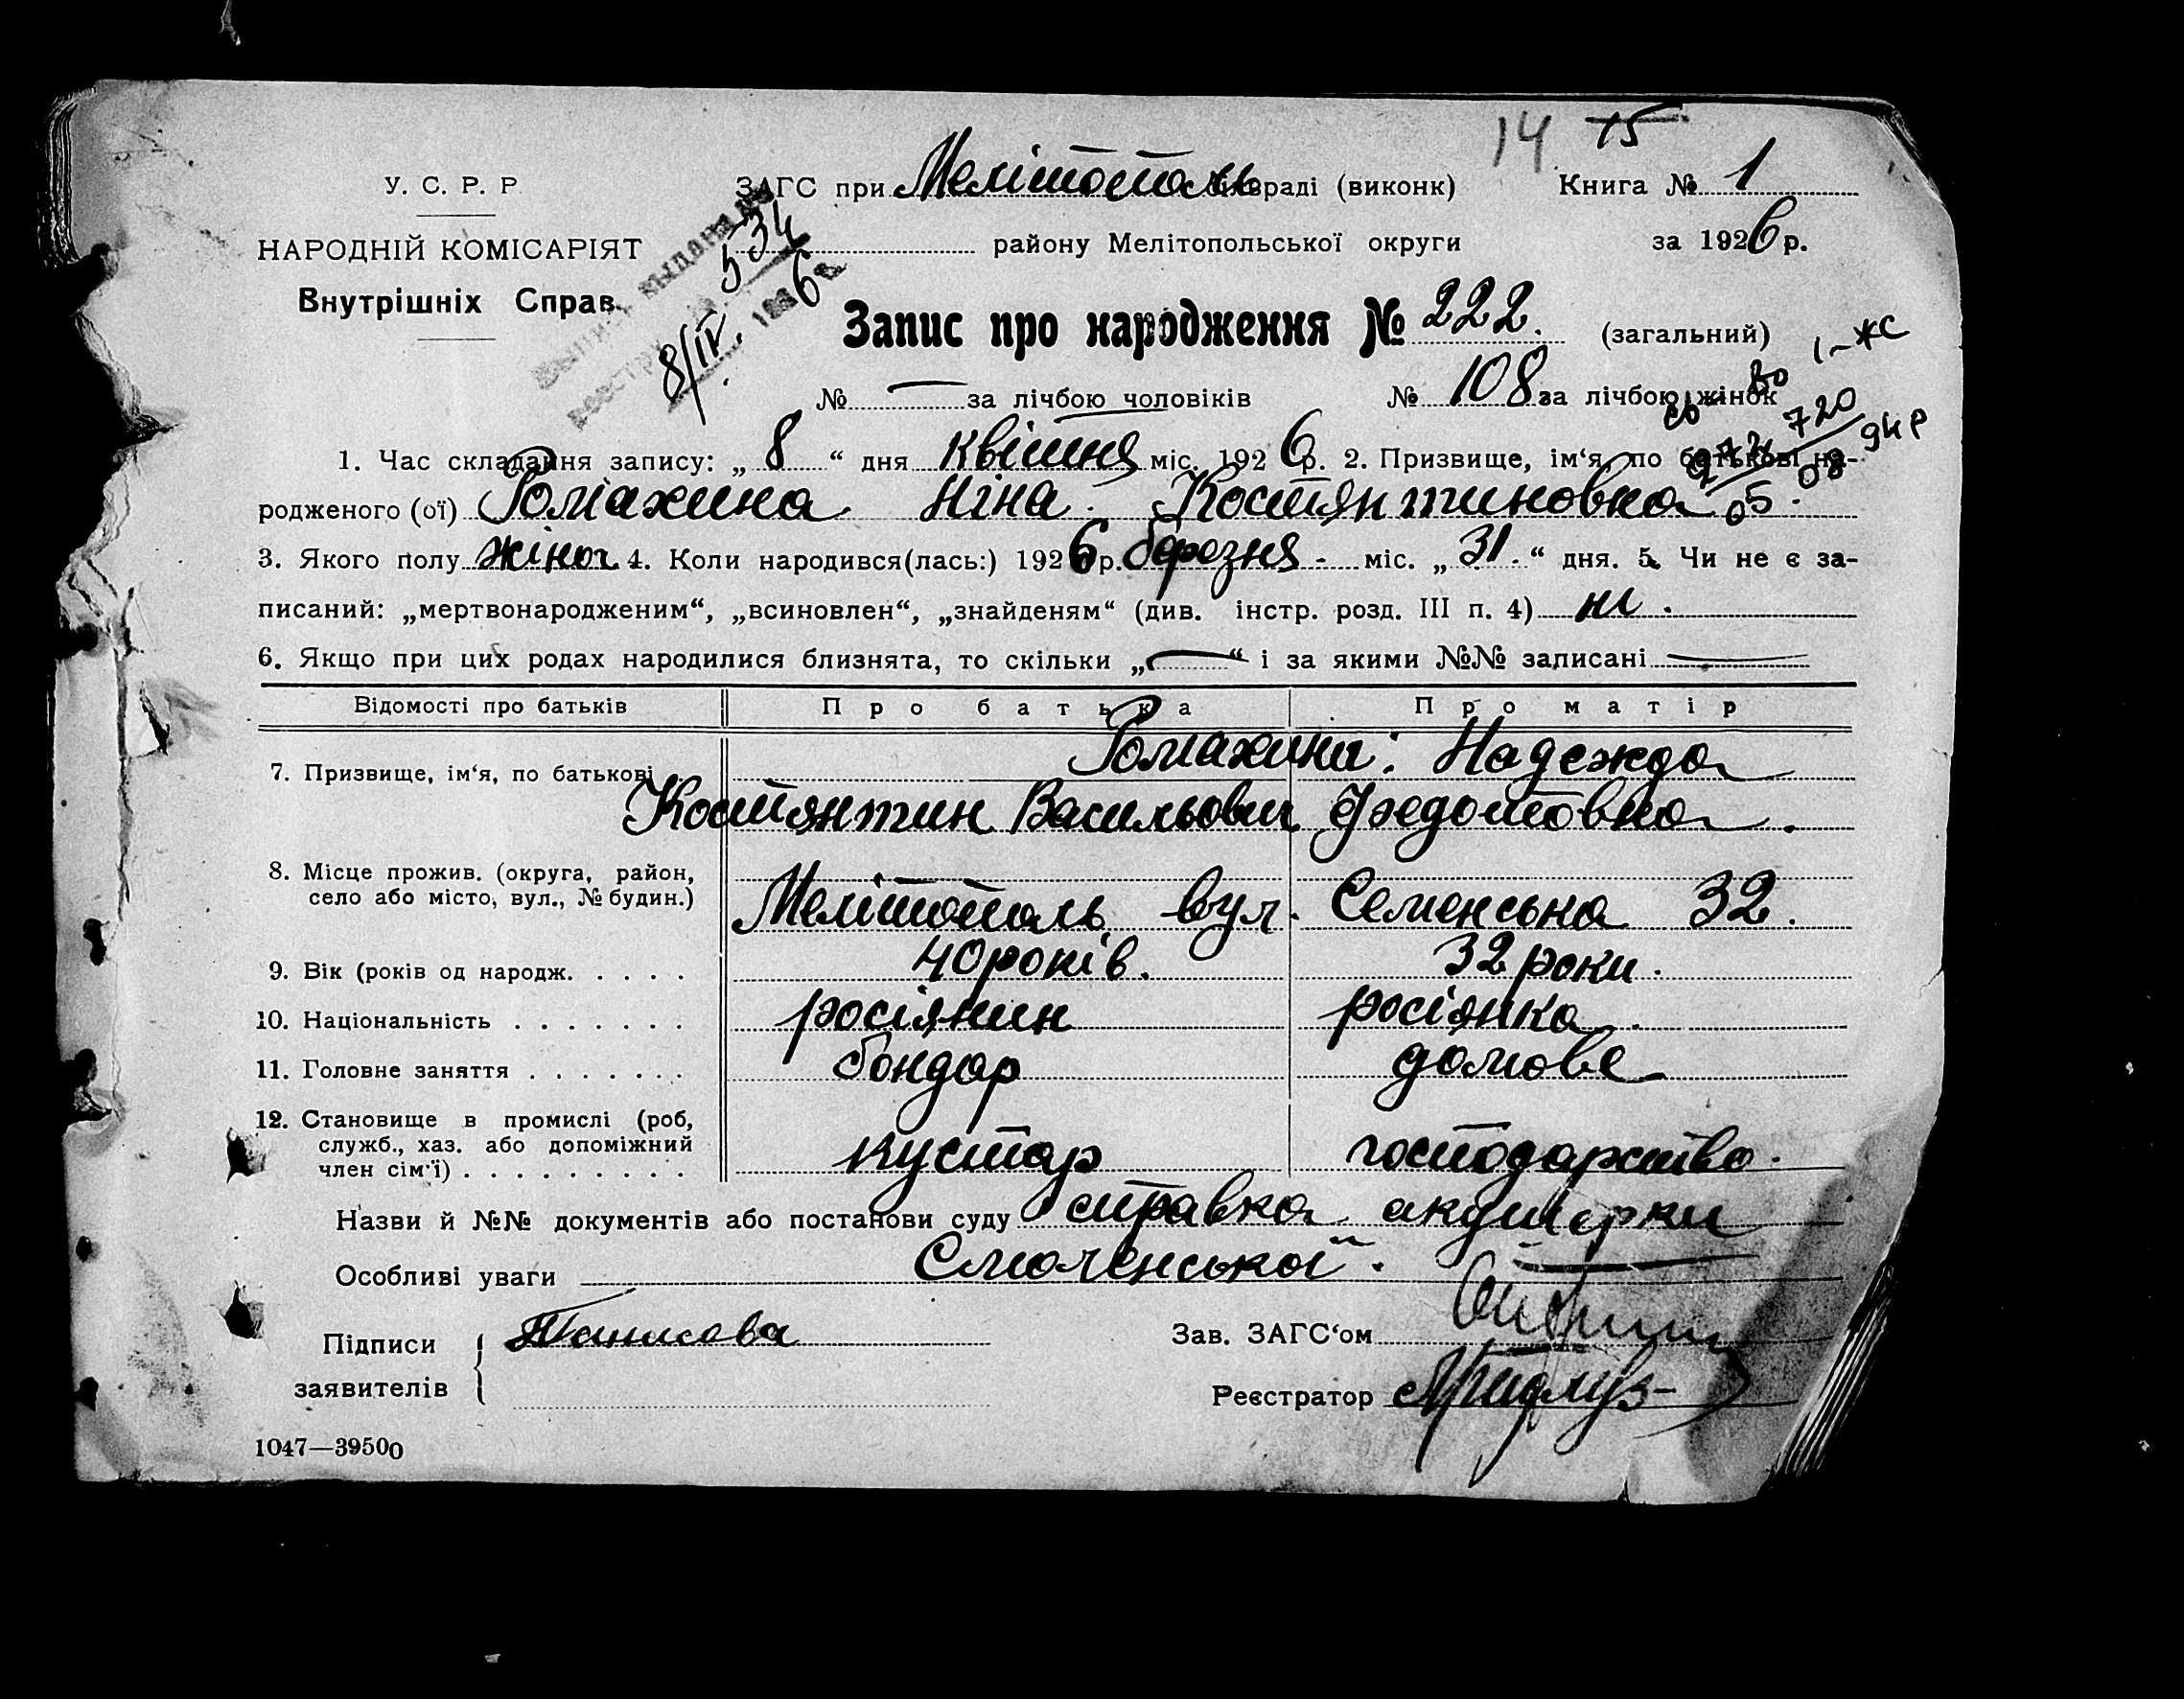 14 15
У. С. Р. Р.
ЗАГС при Мелітополь міськраді (виконк)
Книга № 1
НАРОДНІЙ КОМІСАРІЯТ
району Мелітопольської округи
за 1926 р.
Внутрішніх Справ.
534
8/IV 1926
Запис про народження № 222. (загальний)
1-жс
№ — за лічбою чоловіків № 108 за лічбою жінок
720
94 р
1. Час складання запису: „ 8 “ дня квітня міс. 1926 р. 2. Призвище, ім‘я, по батькові на-
родженого (ої) Ромахина Ніна Костянтиновна
3. Якого полу жіноч 4. Коли народився(лась:) 1926 р. березня міс. „ 31. “ дня. 5. Чи не є за-
писаний: „мертвонародженим“, „всиновлен“, „знайденям“ (див. інстр. розд. III п. 4) ні.
6. Якщо при цих родах народилися близнята, то скільки „ — “ і за якими №№ записані —
Відомості про батьків Про батька Про матір
7. Призвище, ім‘я, по батькові Ромахини: Надежда
Костянтин Васильович Федотовна.
8. Місце прожив. (округа, район,
село або місто, вул., № будин.)
Мелітополь вул. Семенська 32.
9. Вік (років од народж. . . . . 40 років. 32 роки.
10. Національність . . . . . . . росіянин росіянка
11. Головне заняття . . . . . . . бондар домове
12. Становище в промислі (роб,
служб., хаз. або допоміжний
член сім‘ї) . . . . . . . . . кустар господарство.
Назви й №№ документів або постанови суду справка акушерки
Особливі уваги Смоленської.
Підписи
заявителів
Зав. ЗАГС‘ом
Реєстратор
1047—39500